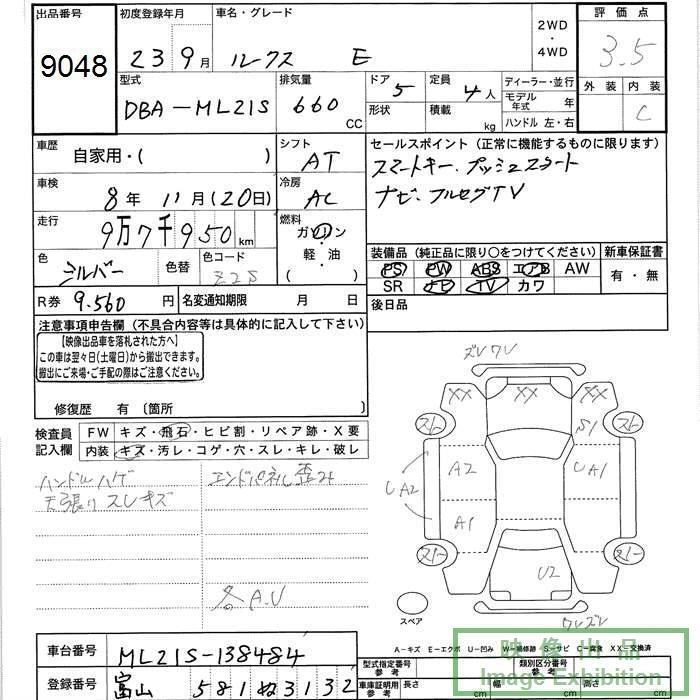 出品番号 初度登録年月 車名・グレード 2WD・4WD 評価点
9048 23 9月 ルークス E 3.5
型式 排気量 ドア 定員 ディーラー・並行 外装 内装
DBA-ML21S 660 CC 5 4人 モデル年式 年 C
形状 積載 kg ハンドル 左・右
車歴 自家用・( ) シフト AT セールスポイント(正常に機能するものに限ります)
スマートキー・プッシュスタート
車検 8年 11月(20日) 冷房 AC ナビ・フルセグTV
走行 9万7千950km 燃料 ガソリン・軽・油 ( )
色 シルバー 色替 色コード Z2S
装備品(純正品に限り○をつけてください) 新車保証書
PS PW ABS エアB AW 有・無
SR ナビ TV カワ
R券 9.560円 名変通知期限 月 日 後日品
注意事項申告欄(不具合内容等は具体的に記入して下さい)
【映像出品車を落札された方へ】
この車は翌々日(土曜日)から搬出できます。
搬出にご来場・ご手配の際はご注意ください。
修復歴 有〔箇所 〕
検査員記入欄 FW キズ・飛石・ヒビ割・リペア跡・X要
内装 キズ・汚レ・コゲ・穴・スレ・キレ・破レ
ハンドルハゲ エンドパネル歪み
天張りスレキズ
各A.U
ズレワレ
XX XX
スト スト
S1
A2 UA1
UA2
A1
スト スト
U2
スペア
ワレズレ
A-キズ E-エクボ U-凹み W-補修跡 S-サビ C-腐食 XX-交換済
車台番号 ML21S-138484
登録番号 富山 581 ぬ 3132
型式指定番号 参考 類別区分番号 参考
車庫証明用参考 長さ cm 幅 cm 高さ cm
映像出品
Image Exhibition